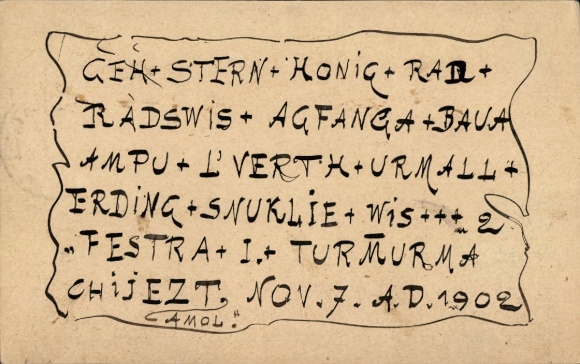 GEH + STERN + HONIG + RAD +
RADSWIS + AGFANGA + BAUA
AMPU + L'VERTH + URMALL +
ERDING + SNUKLIE + WIS +++ 2
„FESTRA + I. + TURMURMA
CHIJEZT. NOV. 7. A.D. 1902
CAMOL."